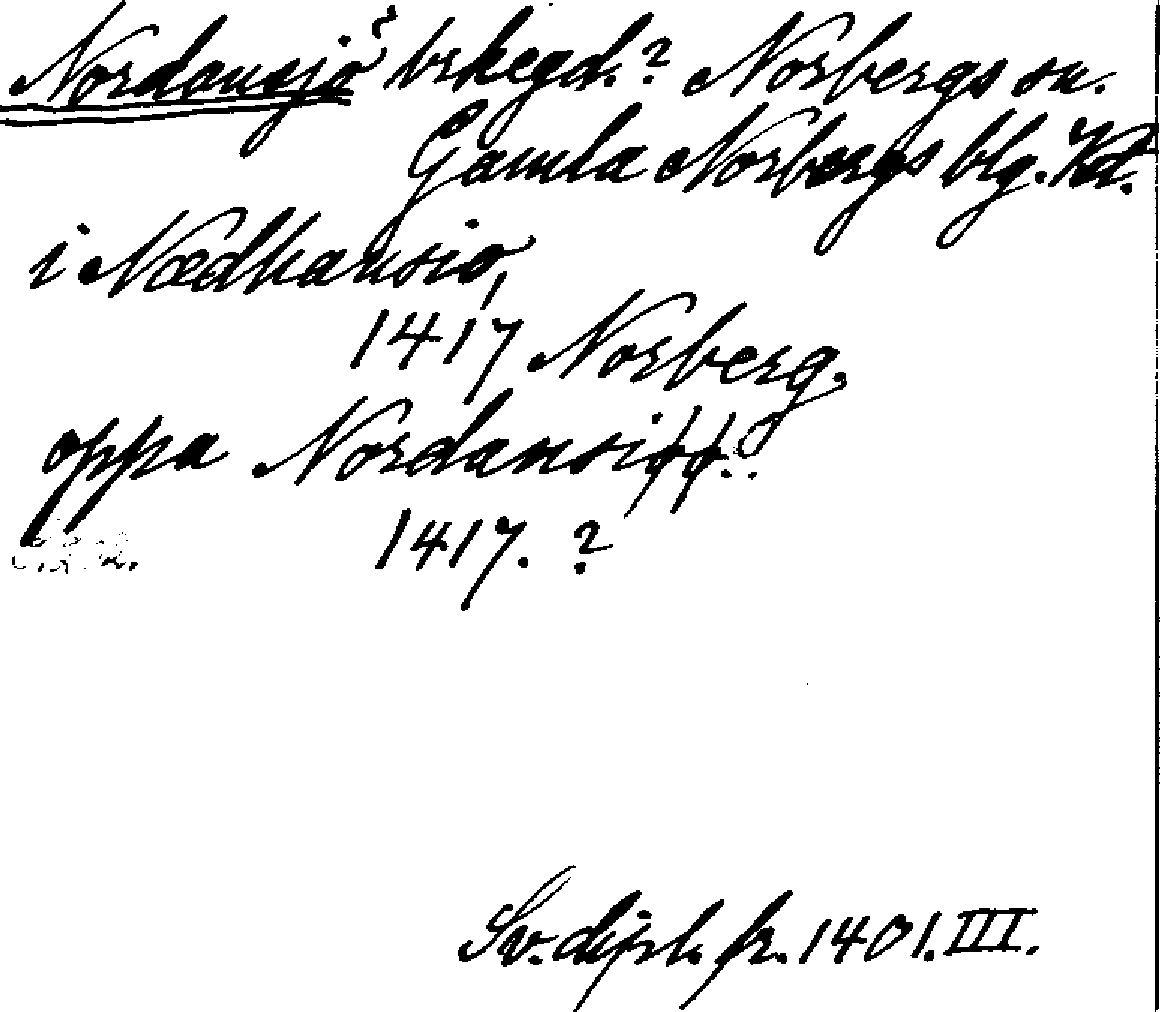 Nordansjö? brkegd.? Norbergs sn.
Gamla Norbergs blg. Vstm.
i Nædhansio,
1417 Norberg.
oppa Nordansiøø..
1417. ?
Sv. dipl. fr. 1401. III.